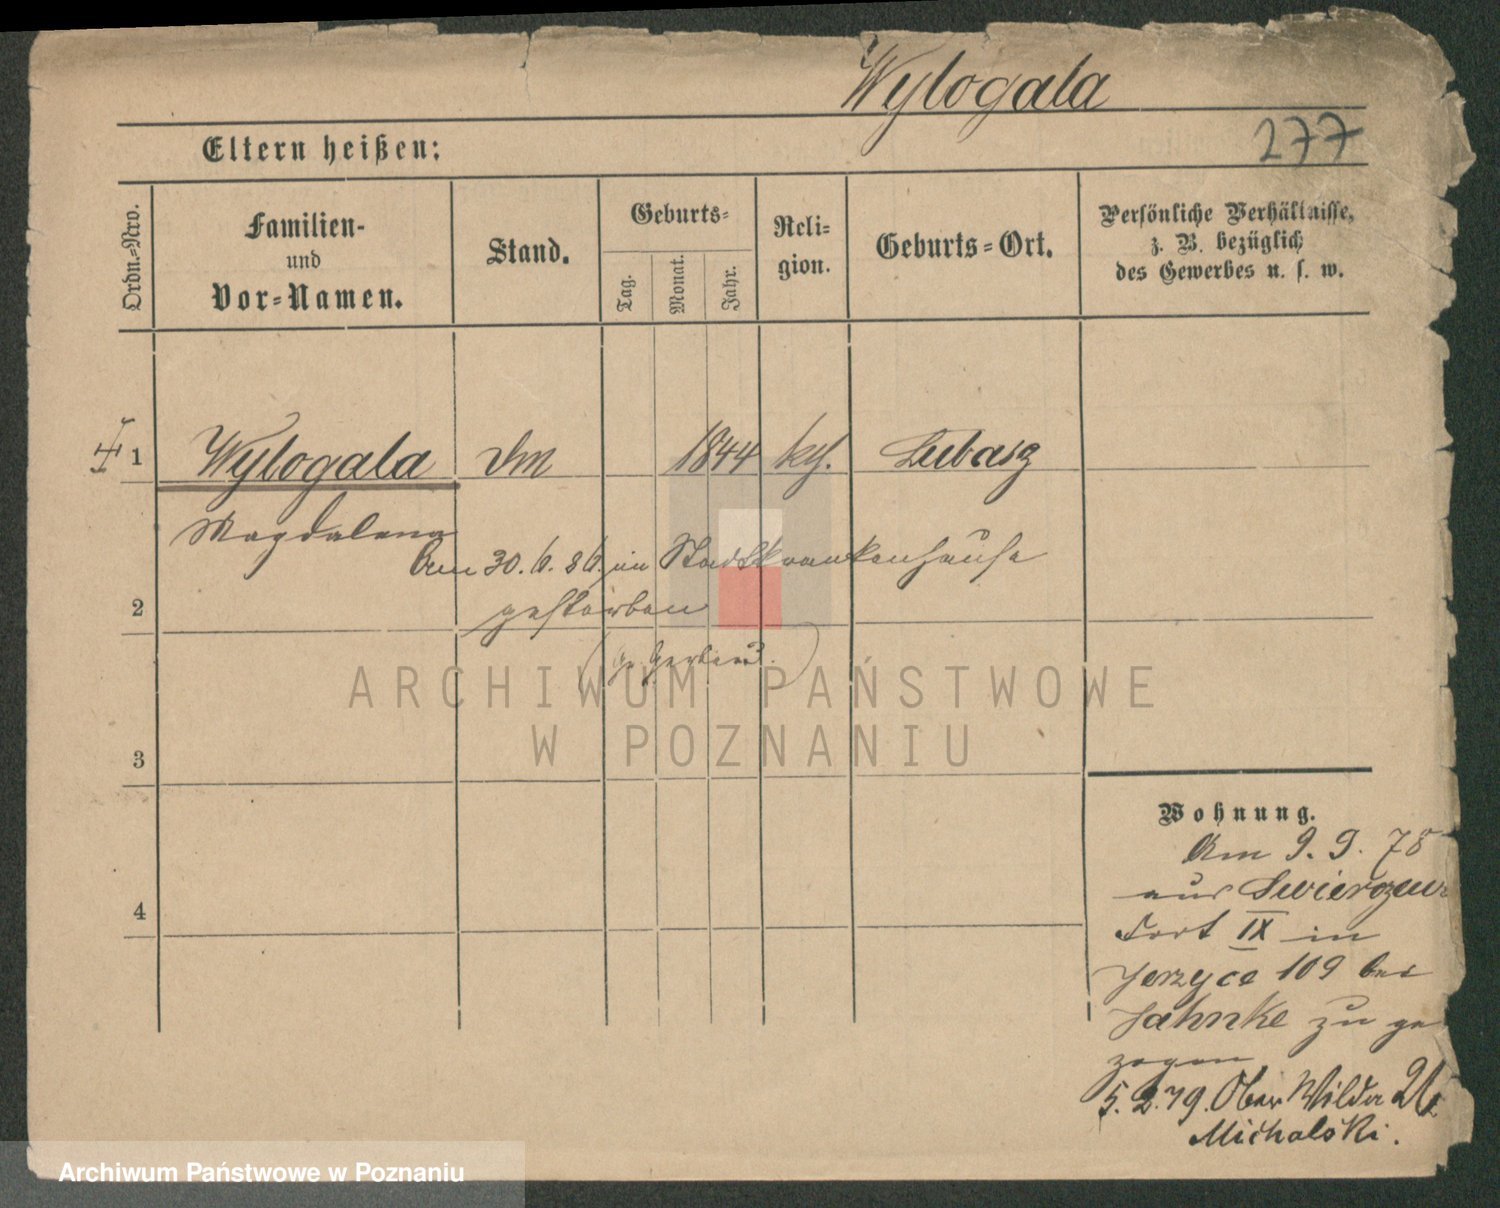 Wylogala
277
Eltern heißen:
Ordn.-Nro.
Familien-
und
Vor-Namen.
Stand.
Geburts-
Tag.
Monat.
Jahr.
Reli-
gion.
Geburts-Ort.
Persönliche Verhältnisse,
z. B. bezüglich
des Gewerbes u. s. w.
1
Wylogala
1844
kth.
Lubasz
Magdalena
Am 30. 6. 86. im Stadtkrankenhause
gestorben
2
3
4
Wohnung.
Am 9. 9. 78
aus Swierczew
Fort IX in
Jerzyce 109 bei
Jahnke zu ge
zogen
5. 2. 79. Ober Wilda
Michalski.
ARCHIWUM PAŃSTWOWE
W POZNANIU
Archiwum Państwowe w Poznaniu